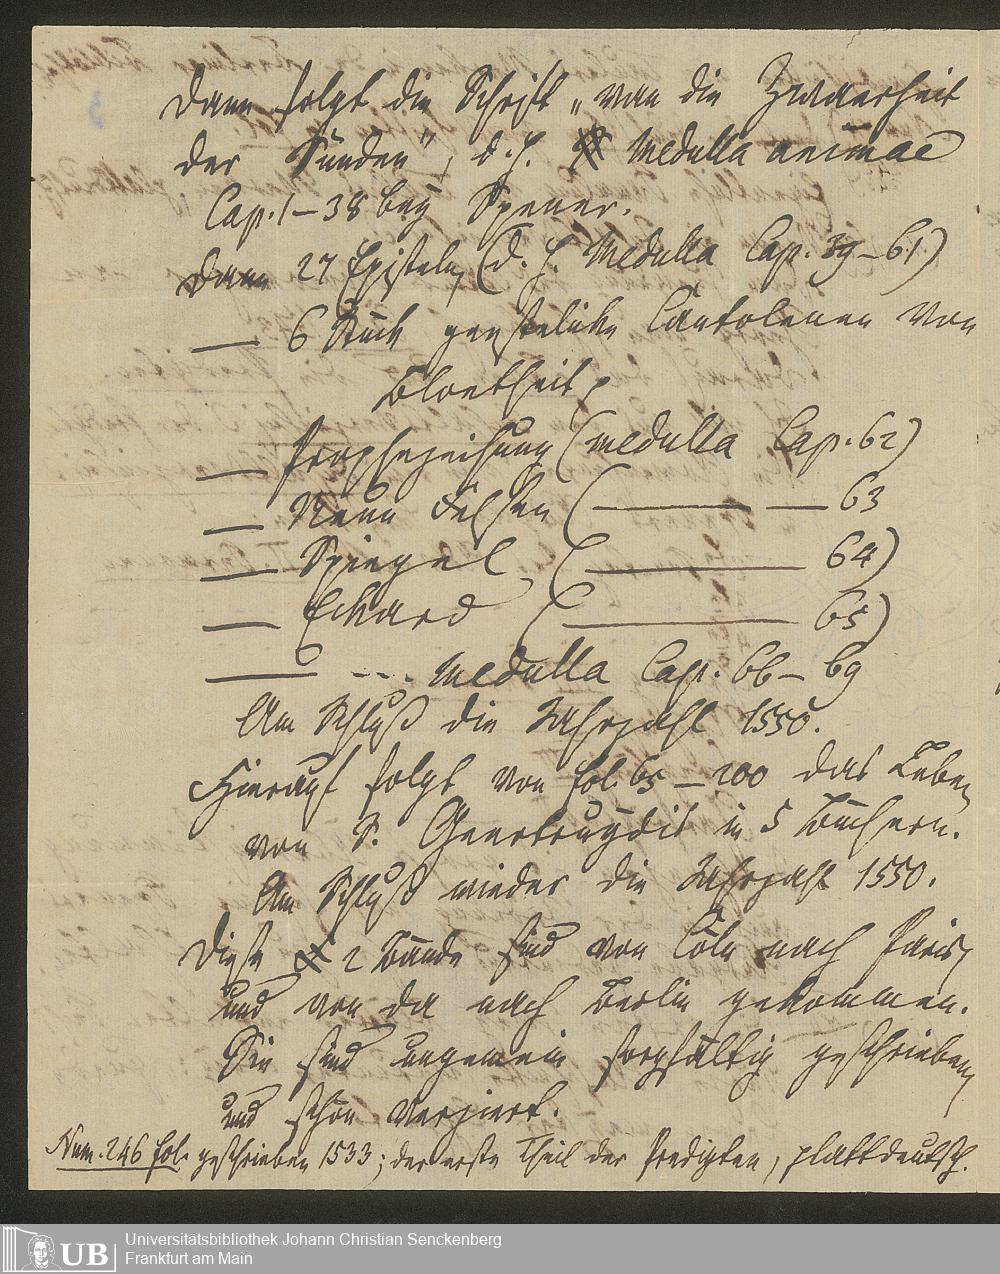 Dann folgt die Schrift „van die Zwaerheit
der Sünden", d. h. Medulla animae
Cap. 1–38 bey Spener.
Dann 27 Episteln, (d. h. Medulla Cap. 39–61.)
— 6 Stück geystelicke Cantolenen von
Bloetheit,
— Prophezeihung (Medulla Cap. 62)
— Neun Felsen (— — 63
— Spiegel, (— 64)
— Eckard (— 65)
— ... Medulla Cap. 66–69
Am Schluß die Jahrzahl 1550.
Hierauf folgt von fol. 65–200 das Leben
von S. Geertruydis in 5 Büchern.
Am Schluß wieder die Jahrzahl 1550.
Diese 2 Bände sind von Cöln nach Paris,
und von da nach Berlin gekommen.
Sie sind ungemein sorgfältig geschrieben,
und schön verziert.
Num. 246 fol. geschrieben 1533; der erste Theil der Predigten, plattdeutsch.
UB
Universitätsbibliothek Johann Christian Senckenberg
Frankfurt am Main